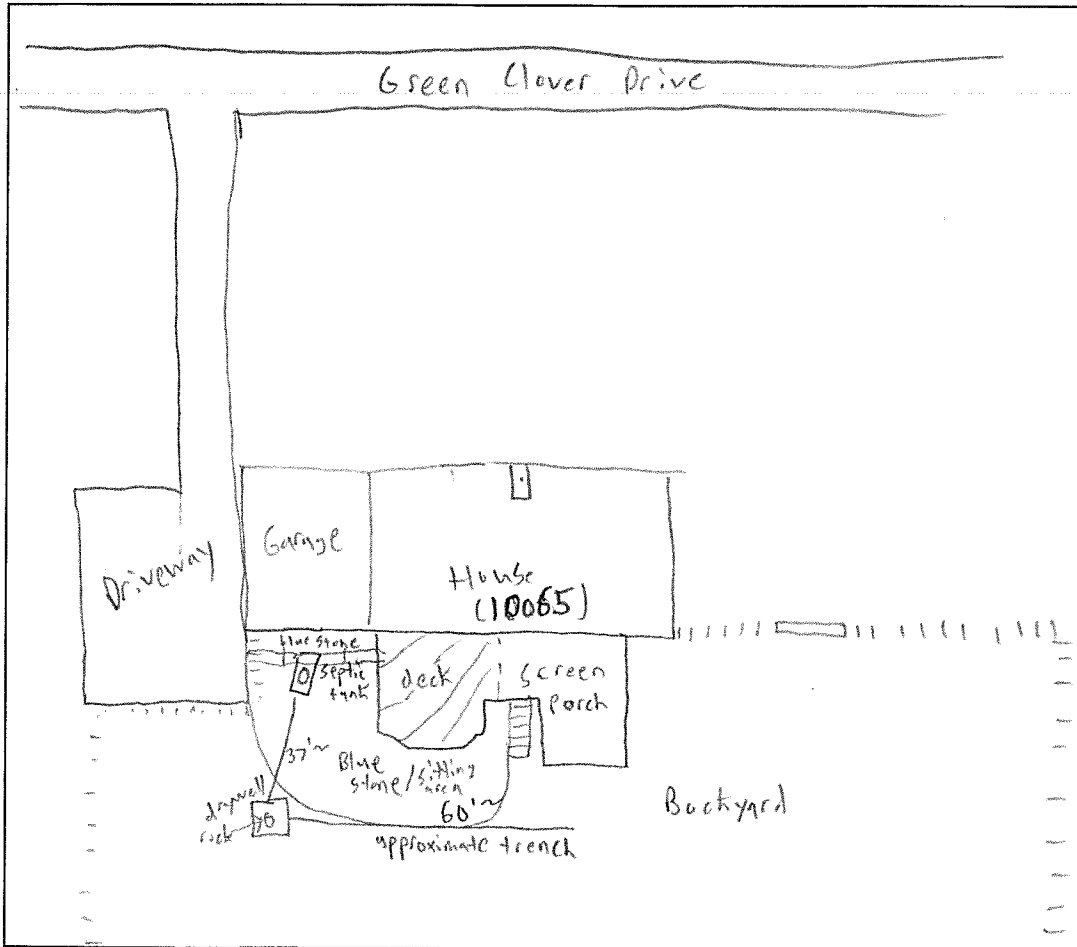 Green Clover Drive
Driveway
Garage
House
(10065)
blue stone
septic
tank
deck
screen
porch
37'~
Blue
stone/sitting
area
60'~
drywell
rock
approximate trench
Backyard